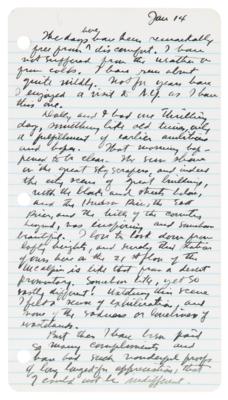 Jan 14
The days have been remarkably
free from discomfort. I have
not suffered from the weather or
from colds. I have run about
quite wildly. Not for years have
I enjoyed a visit to N.Y. as I have
this one.
and I had one thrilling
day, something like old times, with
a fulfilment of earlier ambitions
and hopes. That morning hap-
pened to be clear. The sun shone
on the great sky scrapers, and indeed
the city seen from
with the blocks and streets below,
and the Hudson River, the East
River and the hills of the country
beyond, was inspiring and
beautiful. I love to look down from
lofty heights, and surely this station
of ours here on the 21st floor of the
McAlpin is like that from a desert
promontory. Somehow like, yet so
vastly different! Watching this scene
I feel a sense of exhilaration, and
none of the sadness or loneliness of
wastelands.
But then I have been paid
so many compliments and
have had such wonderful proofs
of appreciation, that
I could not be indifferent.